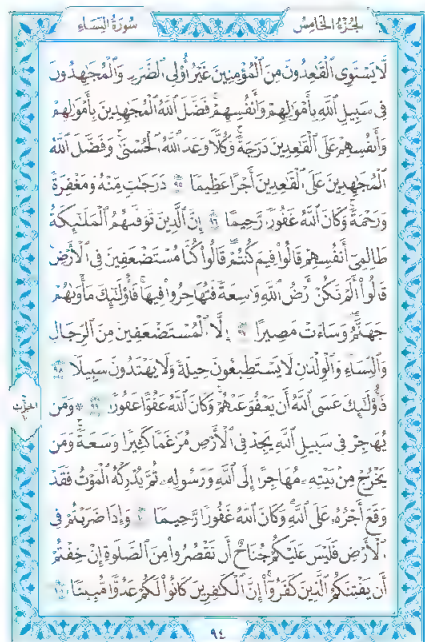 سُورَةُ النِّسَاءِ
الجُزْءُ الْخَامِسُ
لَّا يَسْتَوِي الْقَاعِدُونَ مِنَ الْمُؤْمِنِينَ غَيْرُ أُولِي الضَّرَرِ وَالْمُجَاهِدُونَ
فِي سَبِيلِ اللَّهِ بِأَمْوَالِهِمْ وَأَنفُسِهِمْ فَضَّلَ اللَّهُ الْمُجَاهِدِينَ بِأَمْوَالِهِمْ
وَأَنفُسِهِمْ عَلَى الْقَاعِدِينَ دَرَجَةً وَكُلًّا وَعَدَ اللَّهُ الْحُسْنَى وَفَضَّلَ اللَّهُ
الْمُجَاهِدِينَ عَلَى الْقَاعِدِينَ أَجْرًا عَظِيمًا ٩٥ دَرَجَاتٍ مِّنْهُ وَمَغْفِرَةً
وَرَحْمَةً وَكَانَ اللَّهُ غَفُورًا رَّحِيمًا ٩٦ إِنَّ الَّذِينَ تَوَفَّاهُمُ الْمَلَائِكَةُ
ظَالِمِي أَنفُسِهِمْ قَالُوا فِيمَ كُنتُمْ قَالُوا كُنَّا مُسْتَضْعَفِينَ فِي الْأَرْضِ
قَالُوا أَلَمْ تَكُنْ أَرْضُ اللَّهِ وَاسِعَةً فَتُهَاجِرُوا فِيهَا فَأُولَئِكَ مَأْوَاهُمْ
جَهَنَّمُ وَسَاءَتْ مَصِيرًا ٩٧ إِلَّا الْمُسْتَضْعَفِينَ مِنَ الرِّجَالِ
وَالنِّسَاءِ وَالْوِلْدَانِ لَا يَسْتَطِيعُونَ حِيلَةً وَلَا يَهْتَدُونَ سَبِيلًا ٩٨
فَأُولَئِكَ عَسَى اللَّهُ أَن يَعْفُوَ عَنْهُمْ وَكَانَ اللَّهُ عَفُوًّا غَفُورًا ٩٩ وَمَن
يُهَاجِرْ فِي سَبِيلِ اللَّهِ يَجِدْ فِي الْأَرْضِ مُرَاغَمًا كَثِيرًا وَسَعَةً وَمَن
يَخْرُجْ مِن بَيْتِهِ مُهَاجِرًا إِلَى اللَّهِ وَرَسُولِهِ ثُمَّ يُدْرِكْهُ الْمَوْتُ فَقَدْ
وَقَعَ أَجْرُهُ عَلَى اللَّهِ وَكَانَ اللَّهُ غَفُورًا رَّحِيمًا ١٠٠ وَإِذَا ضَرَبْتُمْ فِي
الْأَرْضِ فَلَيْسَ عَلَيْكُمْ جُنَاحٌ أَن تَقْصُرُوا مِنَ الصَّلَاةِ إِنْ خِفْتُمْ
أَن يَفْتِنَكُمُ الَّذِينَ كَفَرُوا إِنَّ الْكَافِرِينَ كَانُوا لَكُمْ عَدُوًّا مُّبِينًا ١٠١
الحزب
١٠
٩٤